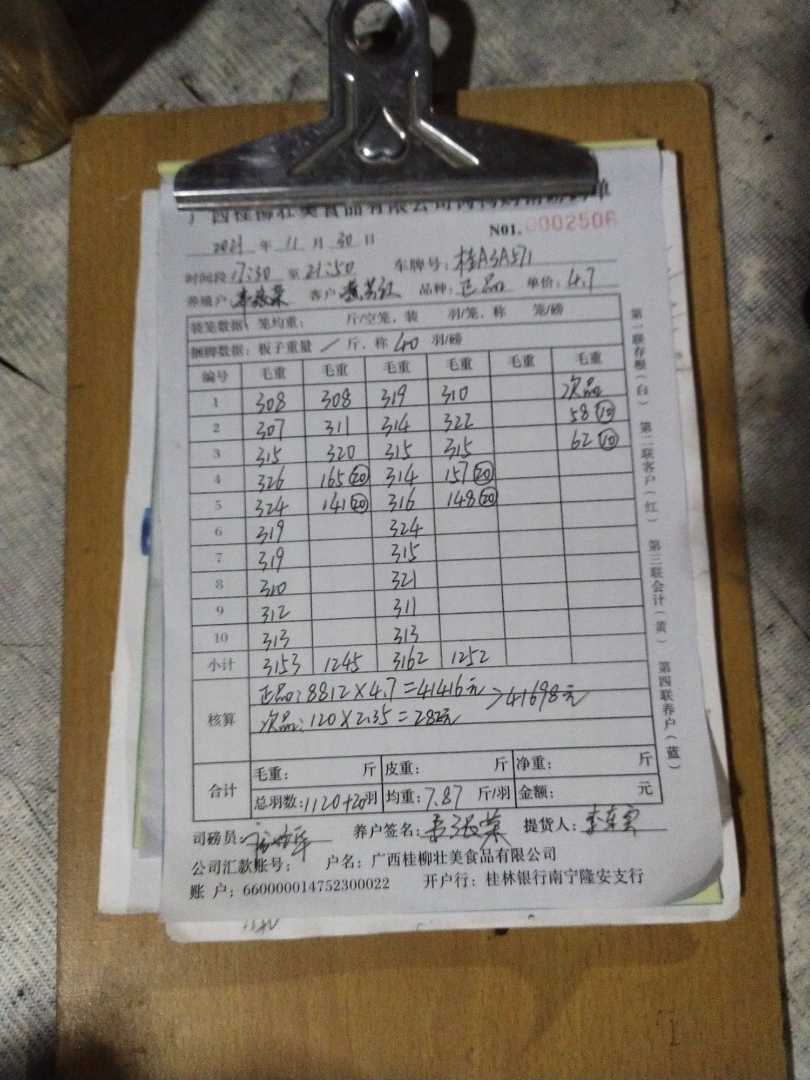 广西桂柳壮美食品有限公司
N01. 000250
2021 年 11 月 30 日
时间段 17:30 至 21:50 车牌号: 桂A3A571
养殖户 客户 品种: 正品 单价: 4.7
装笼数据: 笼均重: 斤/空笼, 装 羽/笼, 称 笼/磅
捆脚数据: 板子重量 / 斤, 称 40 羽/磅
编号 毛重 毛重 毛重 毛重 毛重 毛重
1 308 308 319 310 次品
2 307 311 314 322 58 (10)
3 315 320 315 315 62 (10)
4 326 165 (20) 314 157 (20)
5 324 141 (20) 316 148 (20)
6 319 324
7 319 315
8 310 321
9 312 311
10 313 313
小计 3153 1245 3162 1252
核算 正品: 8812 × 4.7 = 41416元 > 41698元
次品: 120 × 2.35 = 282元
合计 毛重: 斤 皮重: 斤 净重: 斤
总羽数: 1120+20羽 均重: 7.87 斤/羽 金额: 元
司磅员: 养户签名: 提货人:
公司汇款账号: 户名: 广西桂柳壮美食品有限公司
账 户: 660000014752300022 开户行: 桂林银行南宁隆安支行
第一联存根(白) 第二联客户(红) 第三联会计(黄) 第四联养户(蓝)